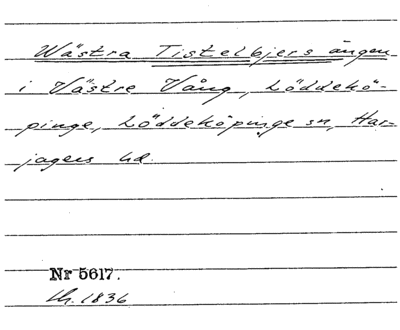 Wästra Tistelbjers ängen
i Västre Vång, Löddekö-
pinge, Löddeköpinge sn, Har-
jagers hd.
Nr 5617.
1836